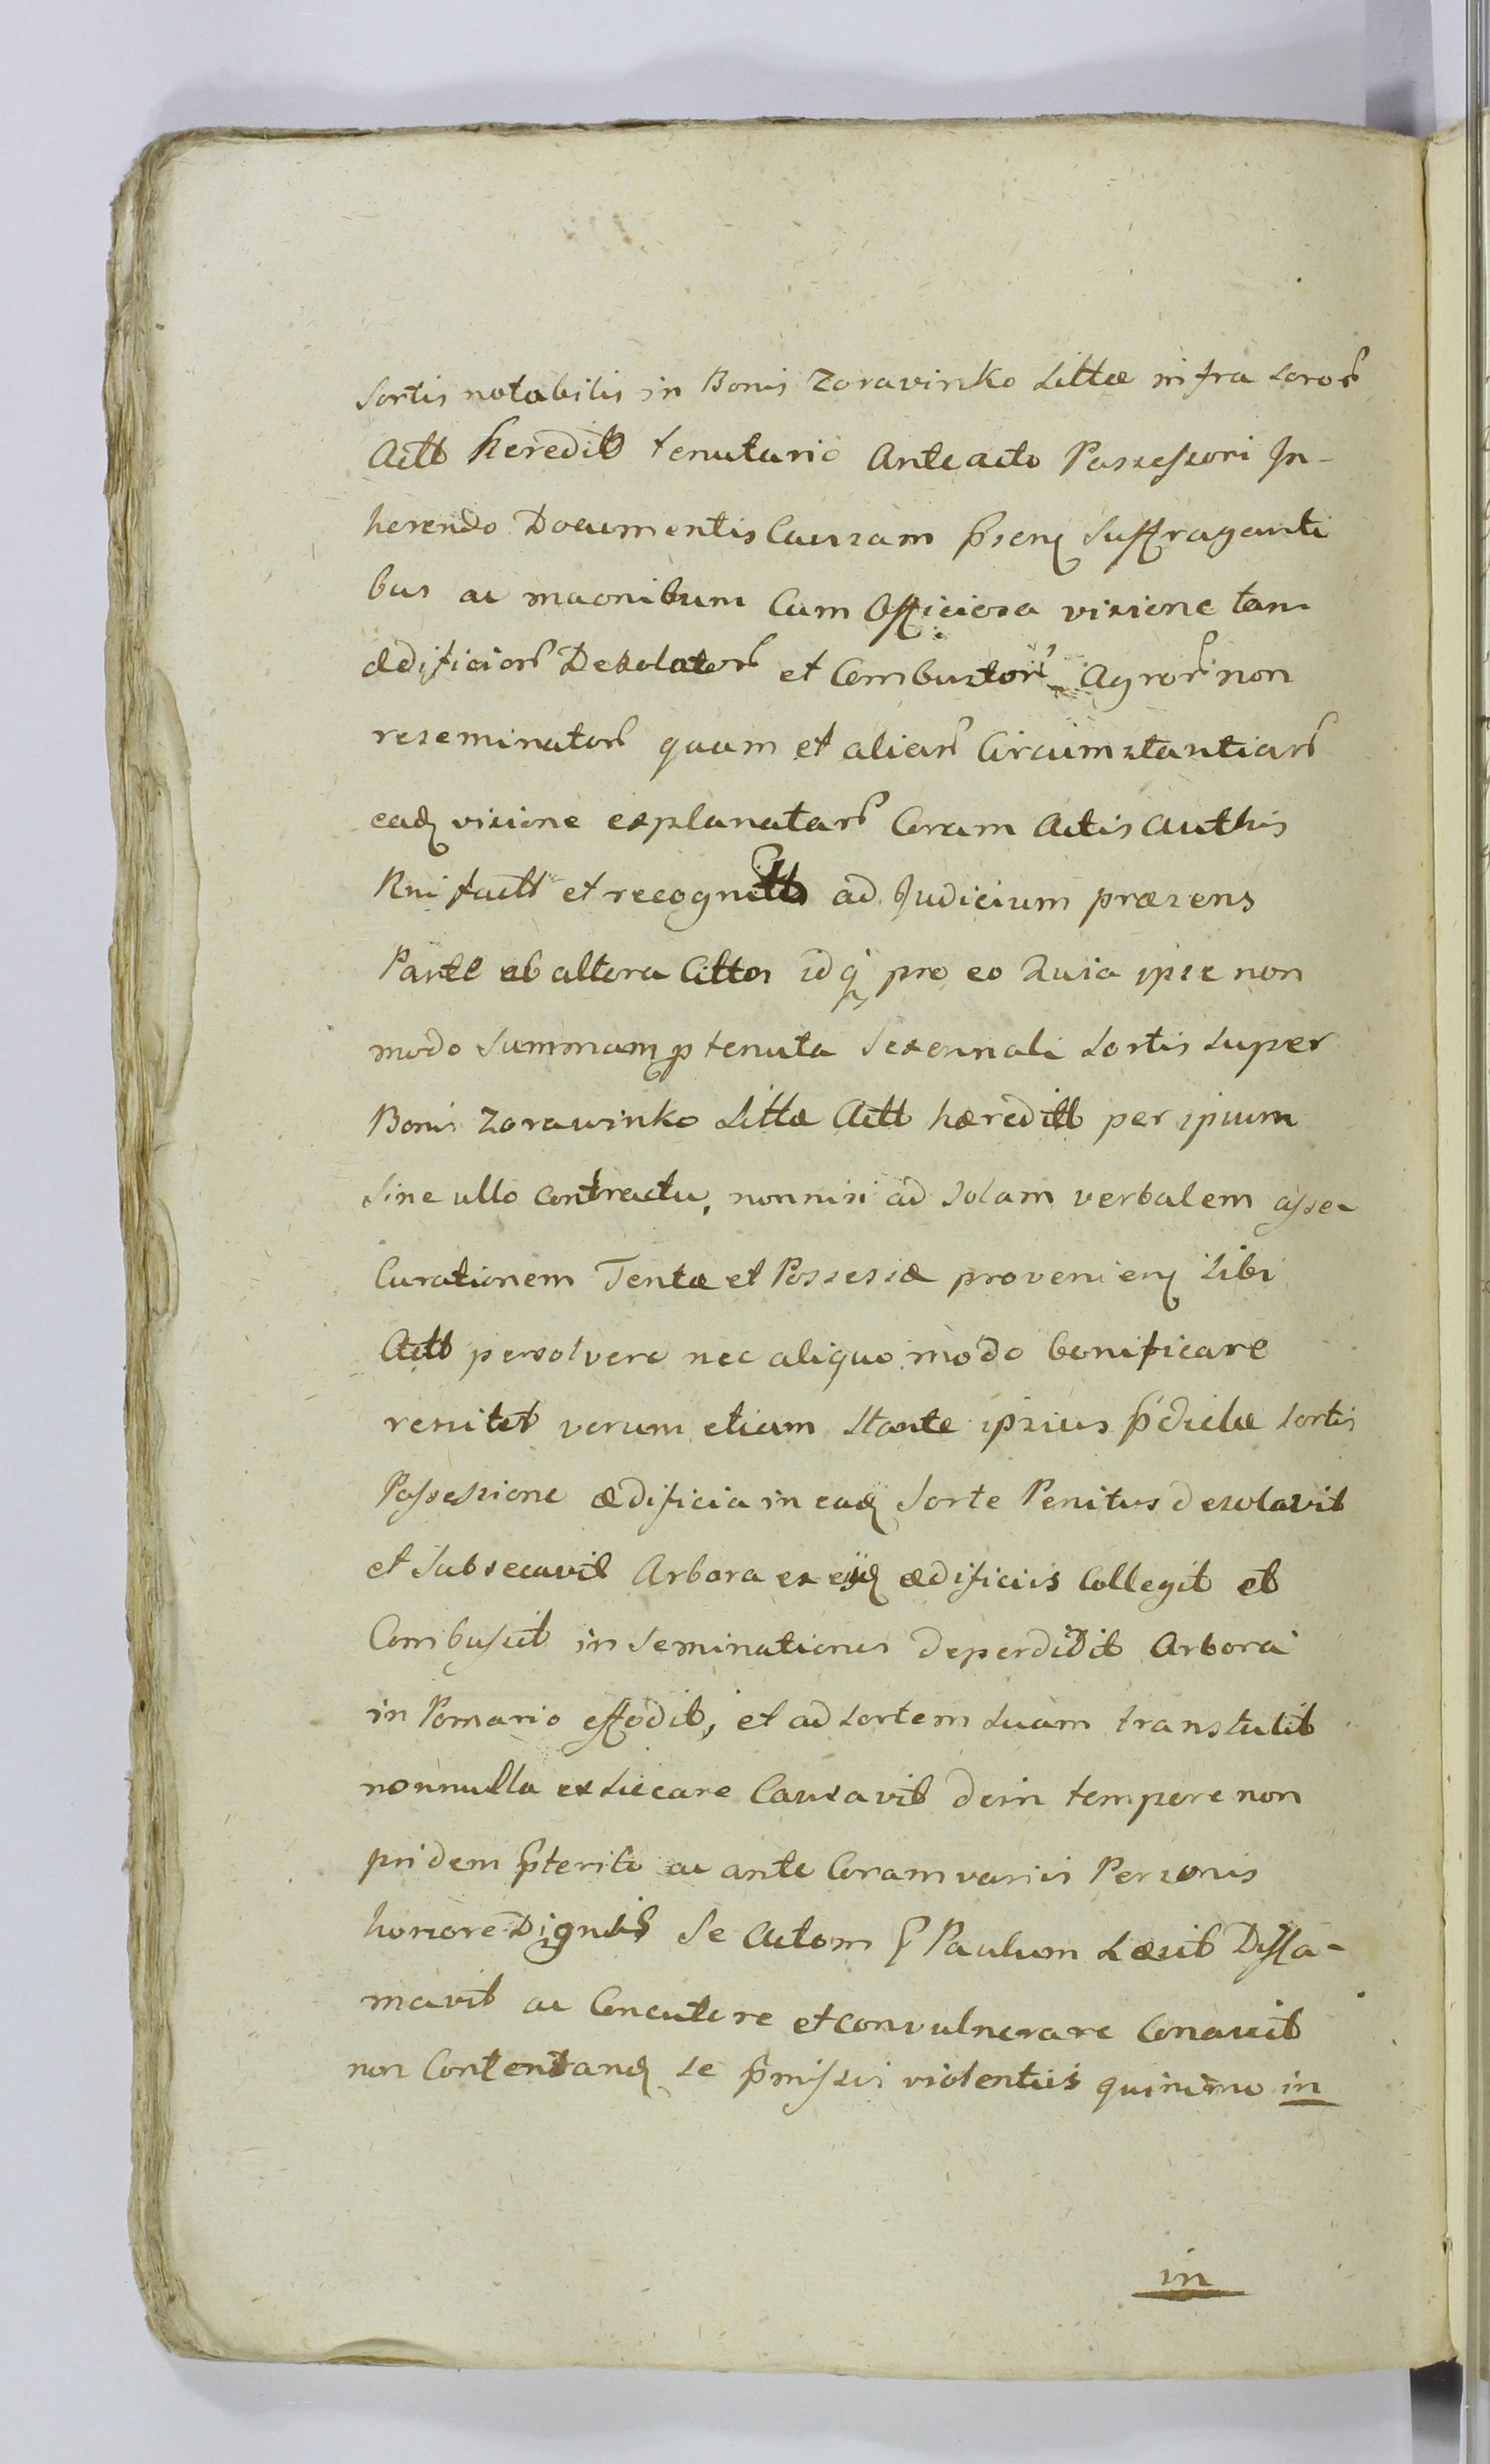 Sortis notabilis in Bonis Zoravinko Littae infra Soror̃
Actt heredit tenutario Anteacto Possessori In-
herendo Documentis Causam p̃senę Suffraganti
bus ac maonibum Cum Officiosa visione tam
ædificior̃ Desolator̃ et Combustor̃ Agror̃ non
reseminator̃ quam et aliar̃ Circumstantiar̃
eadę visione explanatar̃ Coram Actis Authis
Rni factt et recognitt ad Judicium præsens
Parte ab altera Cittŏs idq̨ pro eo Quia ipse non
modo Summam p tenuta Sexennali Sortis Super
Bonis Zorawinko Littæ Actt hæreditt per ipsum
Sine ullo Contractu, nonnisi ad Solam verbalem asse-
Curationem Tentæ et Possessæ provenienę Sibi
Actt persolvere nec aliquo modo bonificare
renitet verum etiam Stante ipsius p̃dictæ Sortis
Possessione ædificia in eadę Sorte Penitus desolavit
et Subsecavit Arbora ex eijsdę ædificiis Collegit et
Combusit inseminationes deperdidit Arbora
in Pomario effodit, et ad Sortem Suam transtulit
nonnulla exsiccare Causavit dein tempore non
pridem p̃terito ac ante Coram variis Personis
honore Dignis Se Actorem Paulum Læsit Diffa-
mavit ac Concutere et convulnerare Conavit
non Contentandę se p̃missis violentiis quinimo in
in